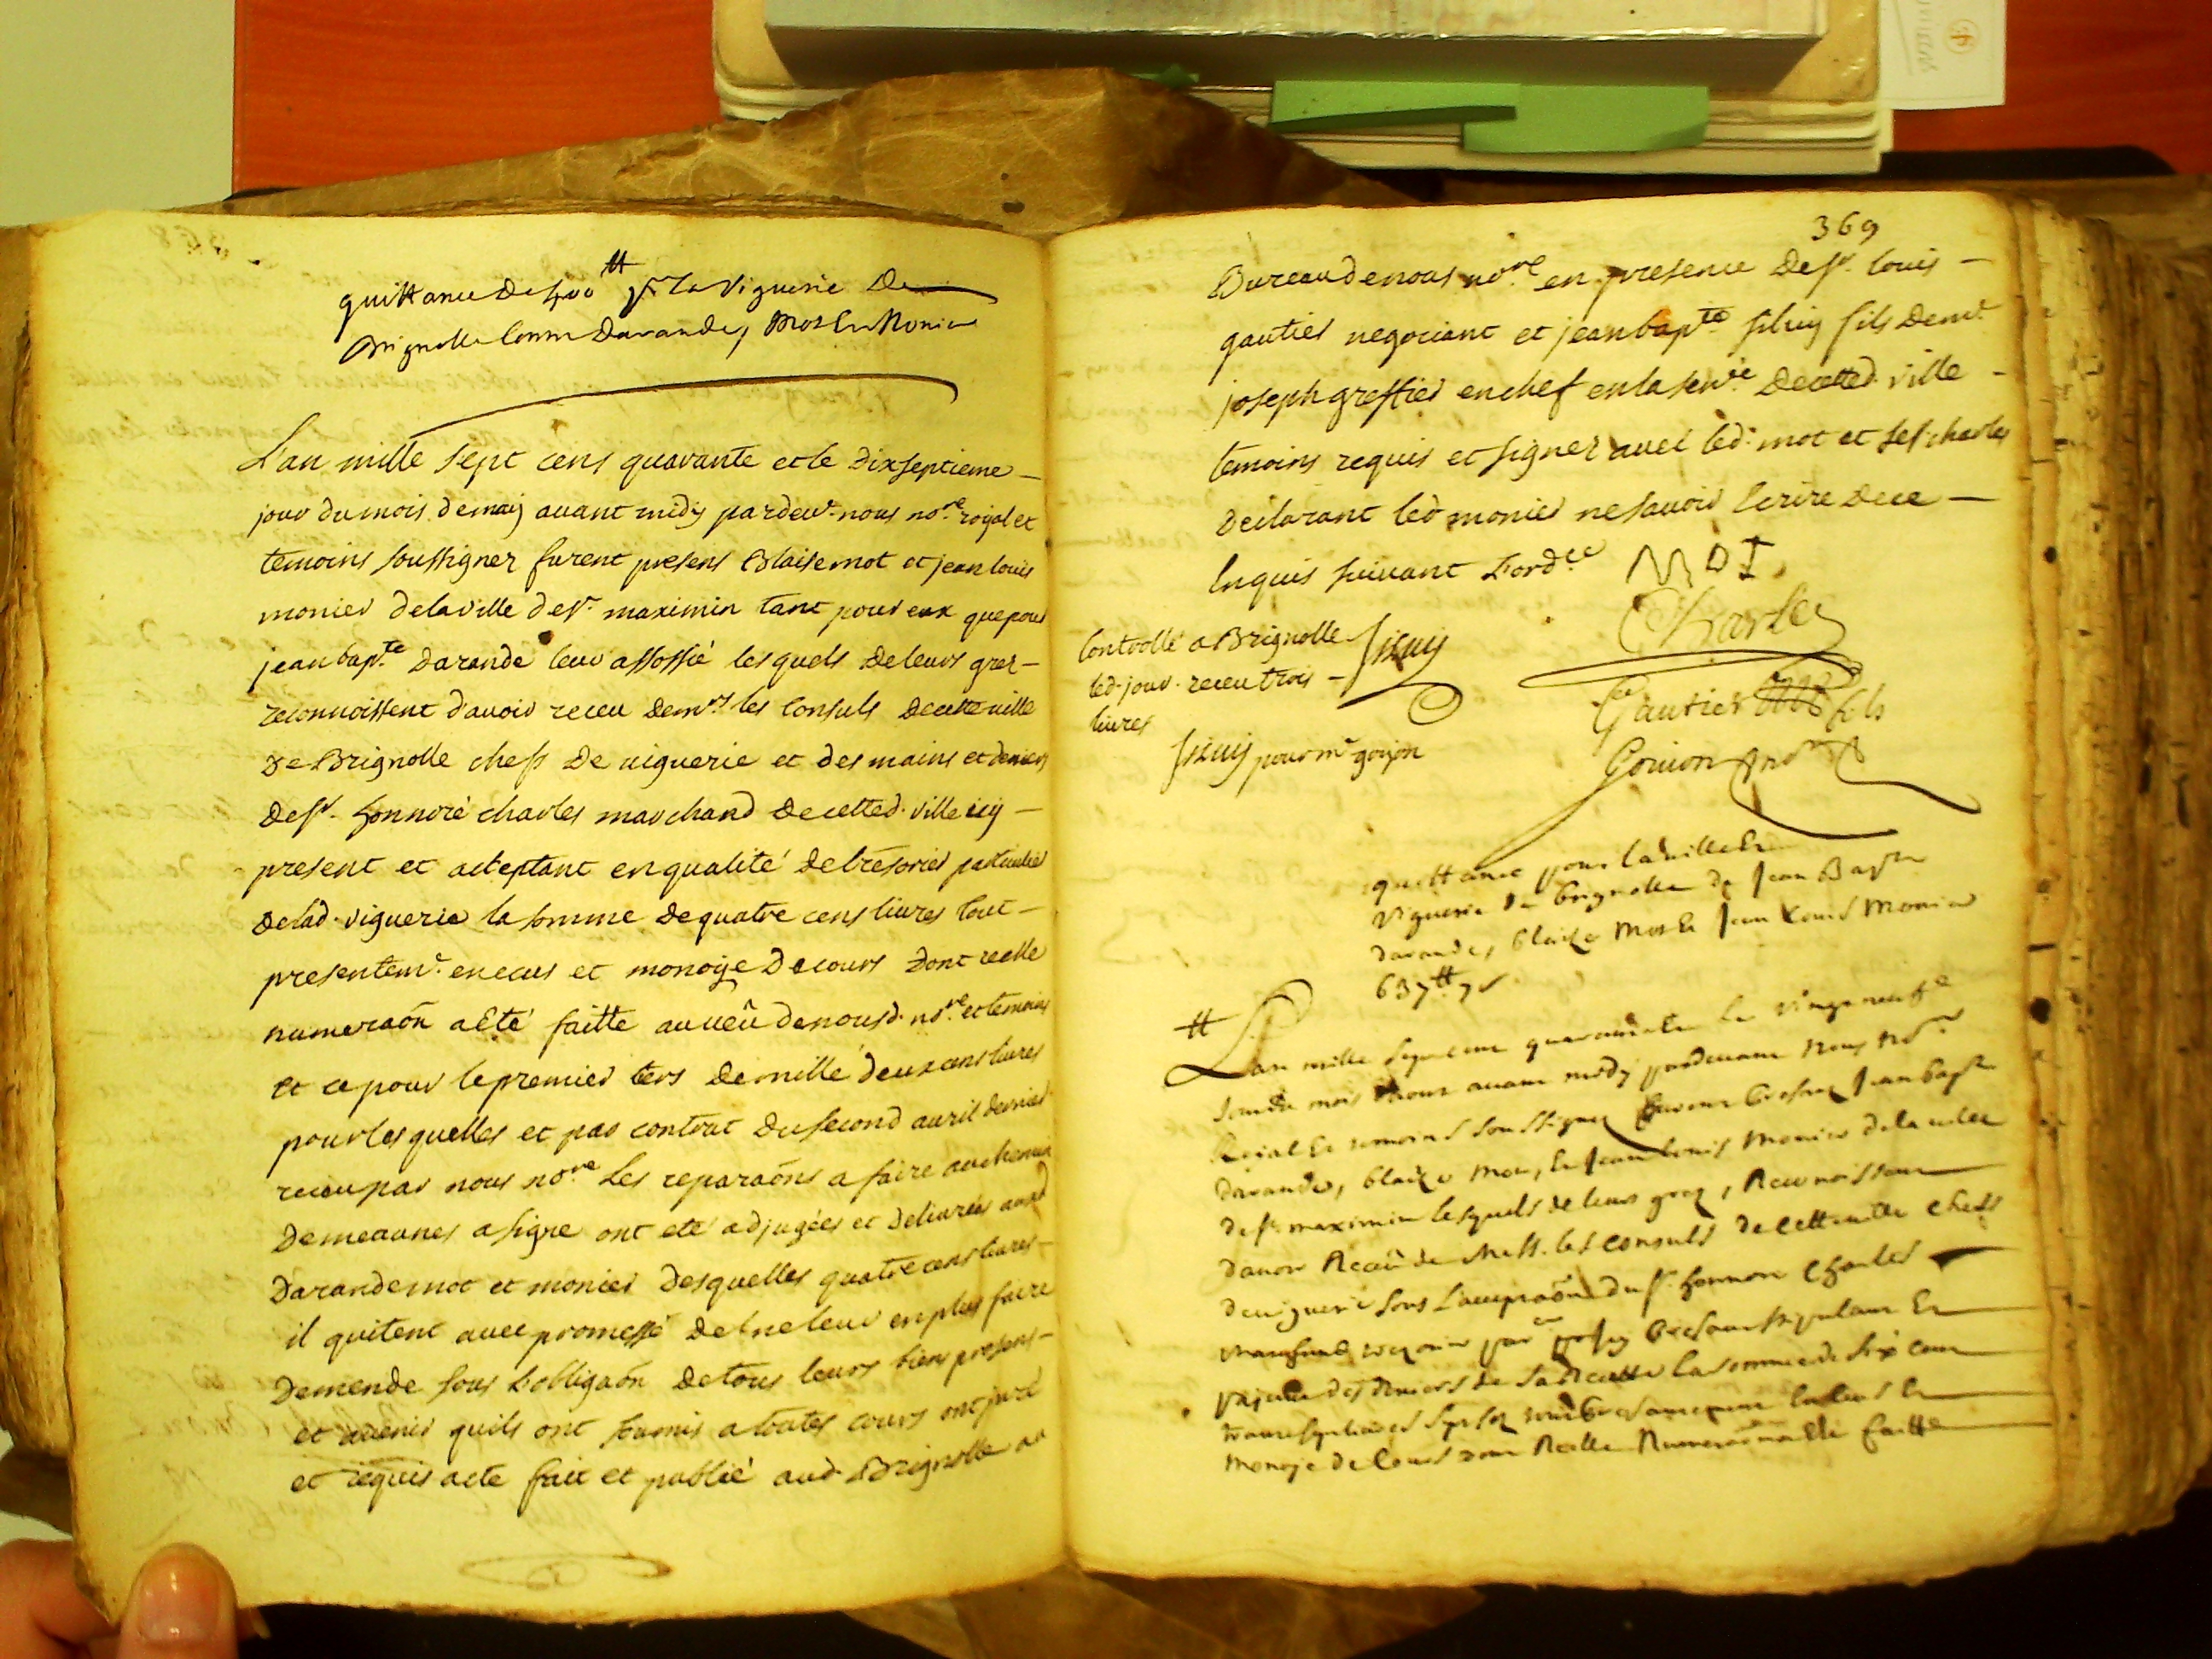 quittance de 400 ₶ pr la viguerie de
Brignolle contre darande, Mot et Monier
L'an mille sept cens quarante et le dixseptieme
jour du mois de may avant midy pardevt. nous nore. royal et
temoins soussignez furent presens Blaise mot et jean louis
monier de la ville de st. maximin tant pour eux que pour
jean bapte. darande leur assossié lesquels de leurs grez
reconnoissent d'avoir receu de mrs les Consuls de cette ville
de Brignolle chefs de viguerie et des mains et deniers
de sr. honnoré charles marchand de cetted. ville icy
present et acceptant en qualité de trésorier particulier
de lad. viguerie la somme de quatre cens livres tout
presentemt. en ecus et monoye de cours dont reelle
numeraõn a èté faitte au veû de nousd. nore. et temoins
et ce pour le premier ters de mille deux cens livres
pour lesquelles et par contrat du second avril dernier
receu par nous nore. Les reparaõns a faire au chemin
de meaunes a signe ont eté adjugées et delivrées auxd.
darande mot et monier desquelles quatre cens livres
il quitent avec promesse de ne leur en plus faire
demende sous l'obligaõn de tous leurs biens presens
et avenir quils ont soumis a toutes cours ont juré
et requis acte fait et publié aud. Brignolle au
369
Bureau de nous nore. en presence de sr. louis
gautier negociant et jean bapte. silvy fils de mr.
joseph greffier en chef en la senie. de cetted. ville
temoins requis et signez avec led. mot et led. sr. charles
declarant led. monier ne savoir Ecrire de ce
Enquis suivant L'ordce.
MOT
Charles
Silvy
Gautier fils
Gouion nore
Controllé a Brignolle
led. jour. receu trois
livres
Silvy pour mr. goujon
quittance pour la ville et
viguerie de brignolle de Jean Bapte
darande, blaize Mot et Jean Louis Monier
637 ₶ 7 s
L'an mille sept cens quarante et le vingt neufe
jour du mois d'aout avant midy pardevant nous nore
Roial et temoins soussignez furent presens Jean bapte
darande, blaize mot, et Jean louis Monier de la ville
de st. maximin lesquels de leurs grez, Reconnoissent
d'avoir Receû de Mess. les consuls de cette ville chefs
de viguerie sous L'acceptaõn du sr. honnoré Charles
marchand tresorier parer. presant stipulant et
payant des deniers de sa Recette la somme de six cens
trente sept livres sept sols tout presentement en ecus et
monoye de cours dont Reelle Numeraõn a été faitte